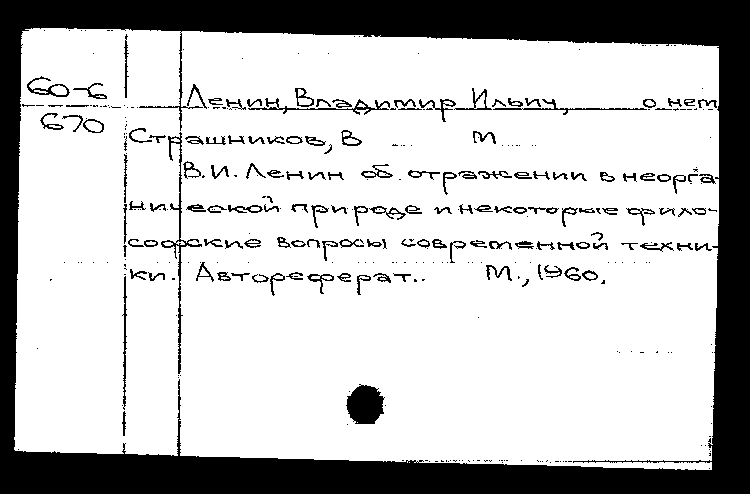 60-6
Ленин, Владимир Ильич, о нем
670
Страшников, В М
В.И. Ленин об отражении в неорга-
нической природе и некоторые фило-
софские вопросы современной техни-
ки. Автореферат.. М., 1960.